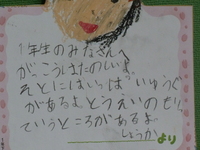 1年生のみなさんへ
がっこうはたのしいよ
そとにはいっぱいゆうぐ
があるよとうえいのもり
ていうところがあるよ
しょうかより